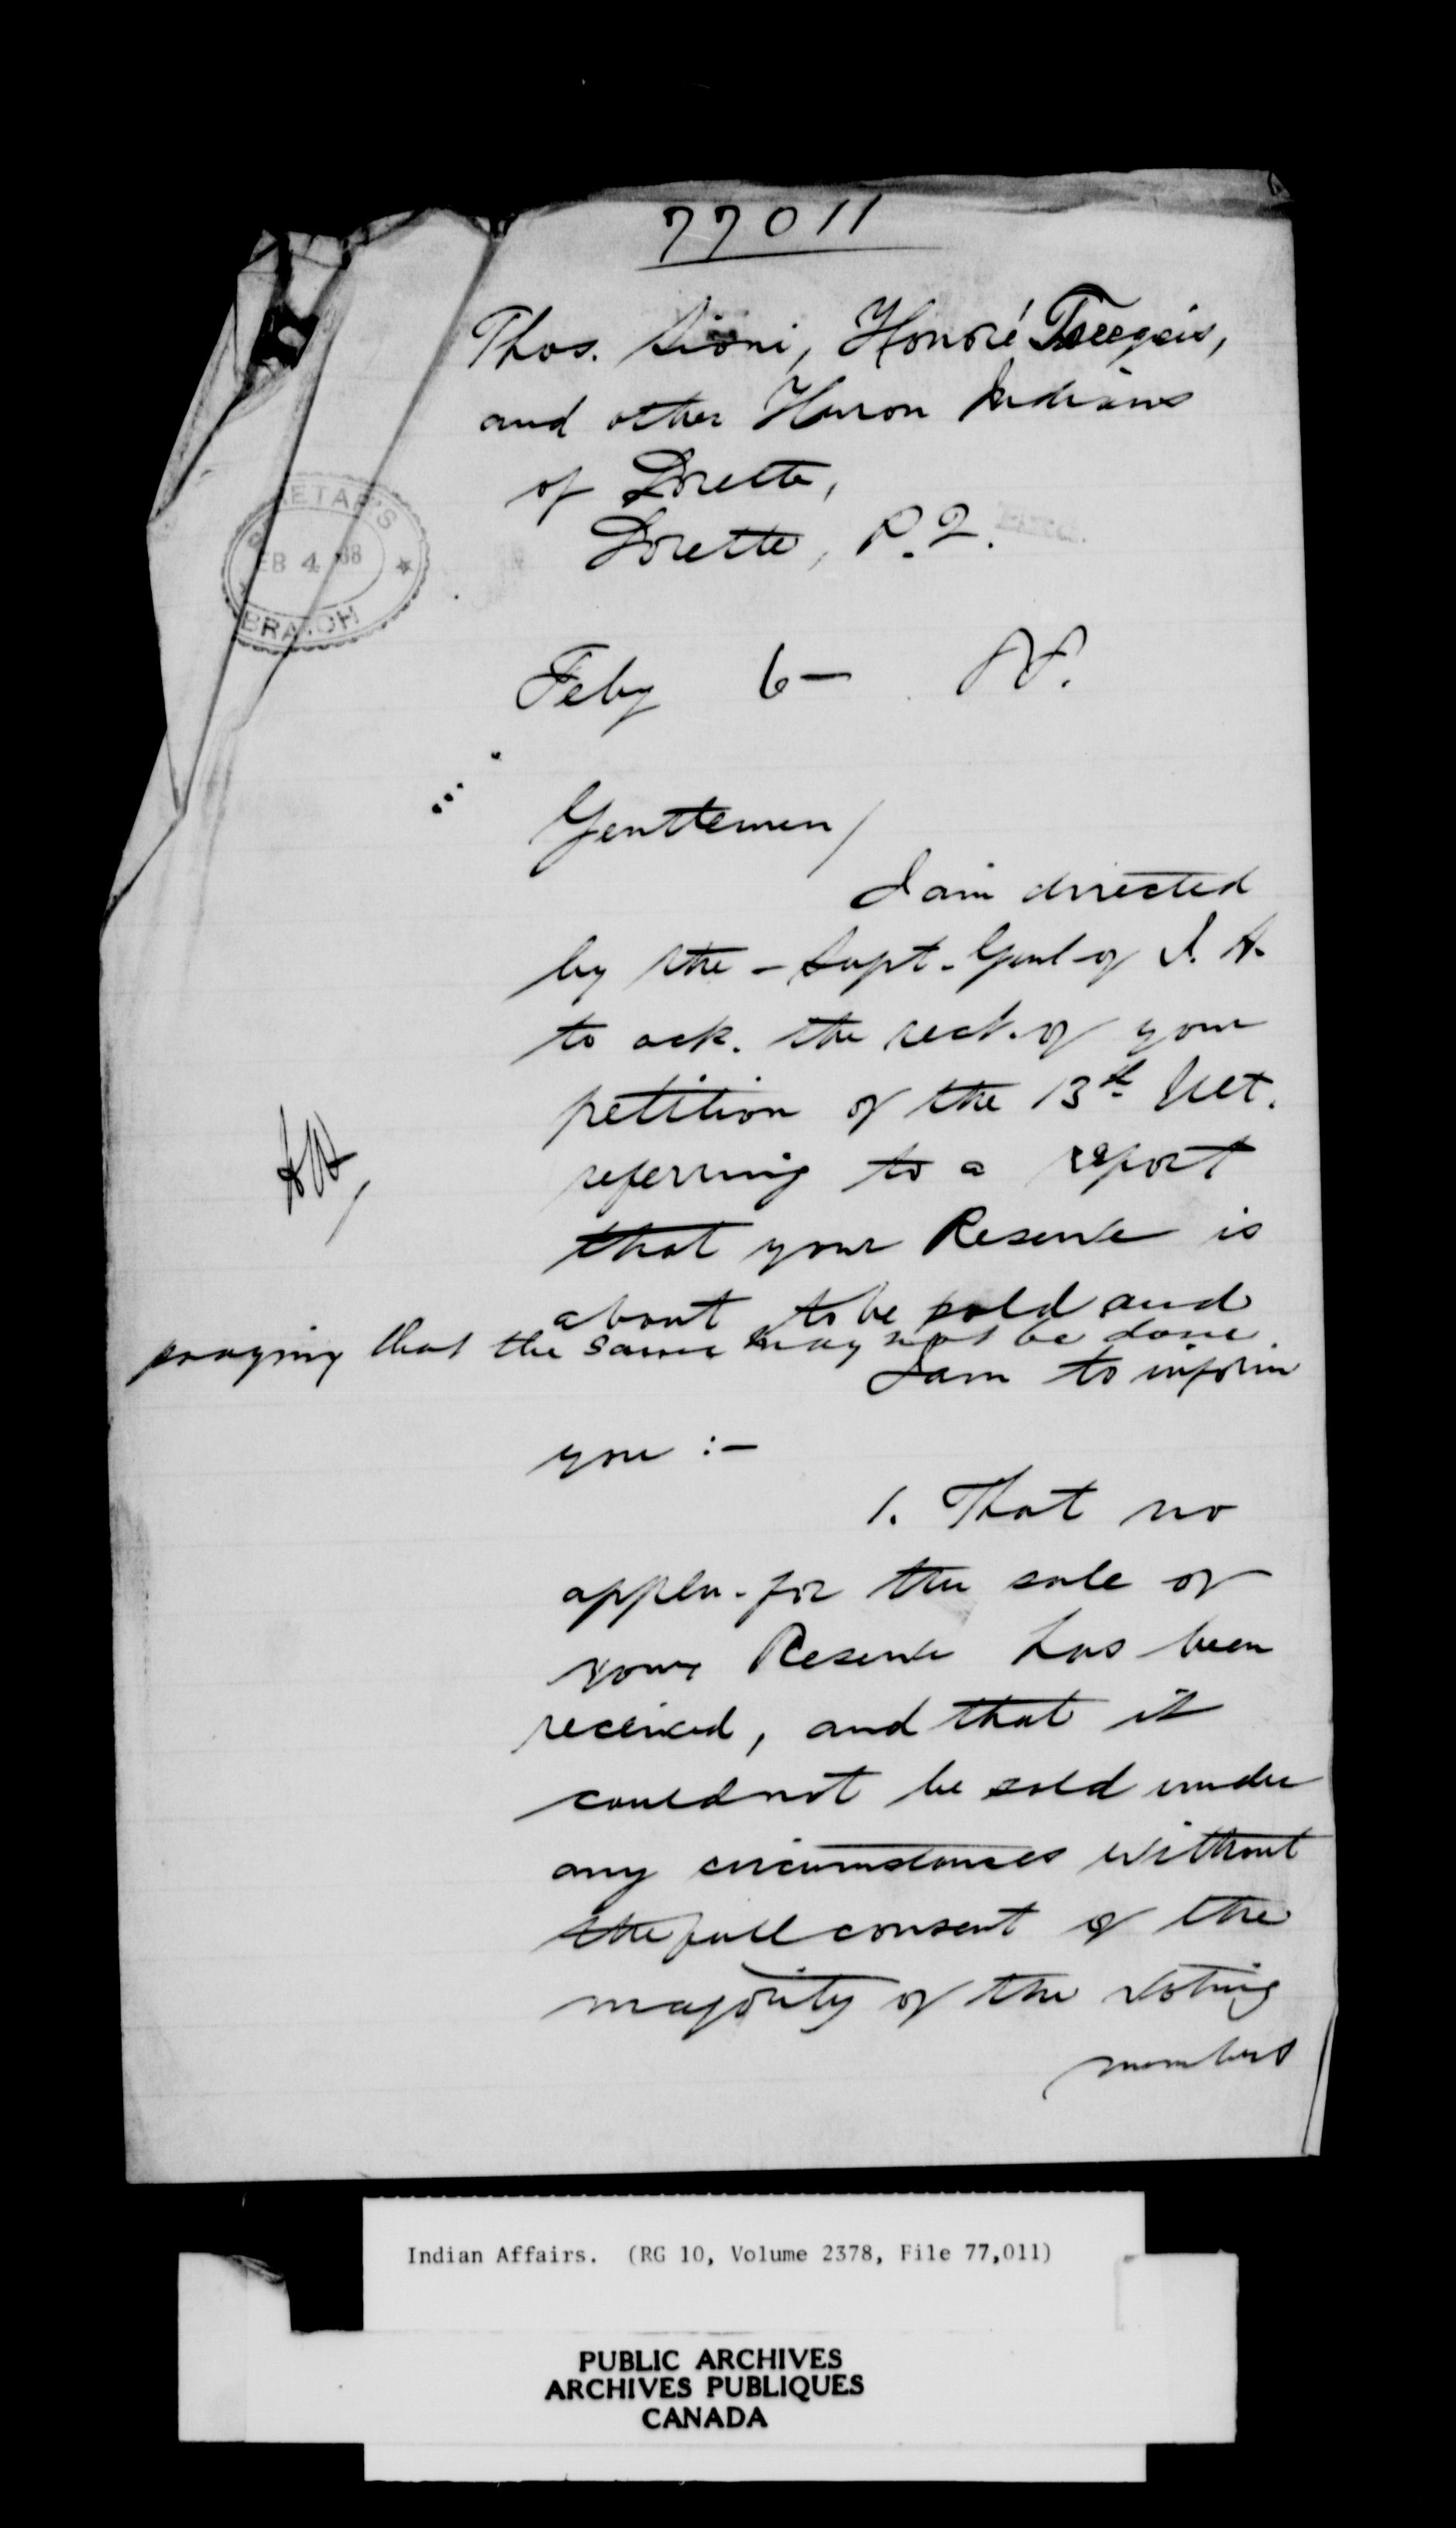 77011
Thos. Sioni, Honoré
and other Huron Indians
of Lorette,
Lorette, P.Q.
BRANCH
Feby 6 - 88.
Gentlemen/
I am directed
by the - Supt. Genl of I. A.
to ack. the rect. of your
petition of the 13th Ult.
referring to a report
that your Reserve is
about to be sold and
praying that the same may not be done.
I am to inform
you :-
1. That no
appln. for the sale of
your Reserve has been
received, and that it
could not be sold under
any circumstances without
the full consent of the
majority of the voting
members
Indian Affairs. (RG 10, Volume 2378, File 77,011)
PUBLIC ARCHIVES
ARCHIVES PUBLIQUES
CANADA